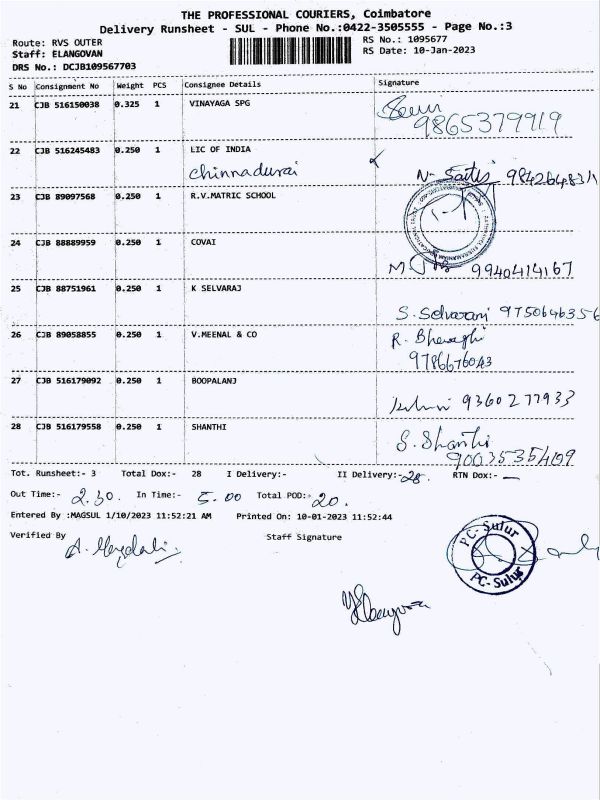 THE PROFESSIONAL COURIERS, Coimbatore
Delivery Runsheet - SUL - Phone No.:0422-3505555 - Page No.:3
Route: RVS OUTER
Staff: ELANGOVAN
DRS No.: DCJB109567703
RS No.: 1095677
RS Date: 10-Jan-2023
S No Consignment No Weight PCS Consignee Details Signature
21 CJB 516150038 0.325 1 VINAYAGA SPG
9865379919
22 CJB 516245483 0.250 1 LIC OF INDIA
Chinnadurai
N- 9842648311
23 CJB 89097568 0.250 1 R.V.MATRIC SCHOOL
24 CJB 88889959 0.250 1 COVAI
9940414167
25 CJB 88751961 0.250 1 K SELVARAJ
S. Selvarani 9750646356
26 CJB 89058855 0.250 1 V.MEENAL & CO
R.
9786676043
27 CJB 516179092 0.250 1 BOOPALANJ
9360277933
28 CJB 516179558 0.250 1 SHANTHI
S. Shanthi
9003535409
Tot. Runsheet:- 3 Total Dox:- 28 I Delivery:- II Delivery:- 28. RTN Dox:- —
Out Time:- 2.30. In Time:- 5.00 Total POD:- 20.
Entered By :MAGSUL 1/10/2023 11:52:21 AM Printed On: 10-01-2023 11:52:44
Verified By Staff Signature
PC-Sulur
PC-Sulur